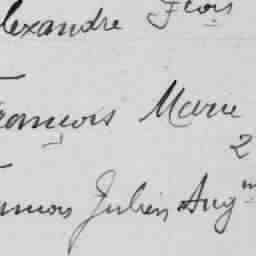 lexandre Flois
rançois Marie
2
Julien Aug m